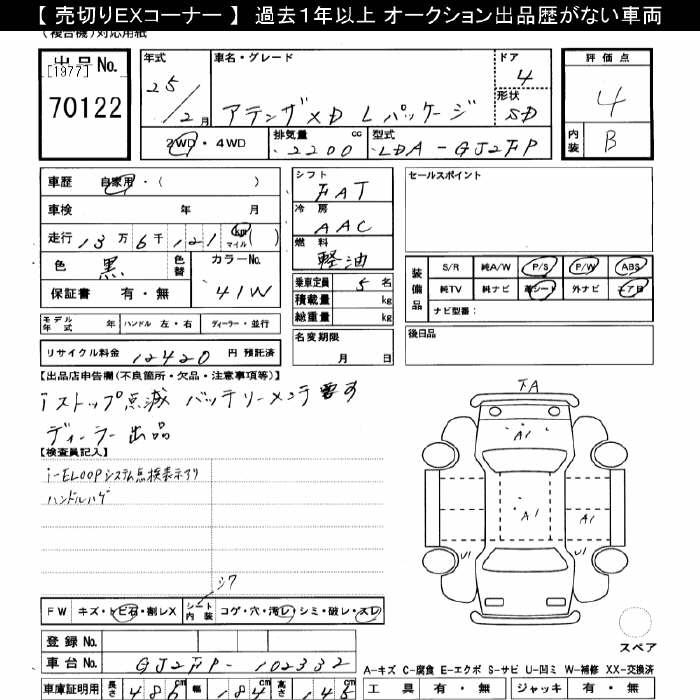 【 売切りEXコーナー 】 過去１年以上 オークション出品歴がない車両
(複合機)対応用紙
出品No.
[1977]
70122
年式
25/2月
車名・グレード
アテンザXD Lパッケージ
ドア
4
形状
SD
2WD・4WD
排気量
2200 cc
型式
LDA-GJ2FP
評価点
4
内装
B
車歴 自家用・( )
車検 年 月
走行 13万6千121 km マイル ( )
色 黒 色替 カラーNo.
41W
保証書 有・無
シフト
FAT
冷房
AAC
燃料
軽油
乗車定員 5名
積載量 kg
総重量 kg
セールスポイント
装備品
S/R 純A/W P/S P/W ABS
純TV 純ナビ 革シート 外ナビ エアB
ナビ型番:
モデル年式 年 ハンドル 左・右 ディーラー・並行
名変期限
月 日
後日品
リサイクル料金 12420 円 預託済
【出品店申告欄(不良箇所・欠品・注意事項等)】
iストップ点滅 バッテリーメンテ要す
ディーラー出品
【検査員記入】
i-ELOOPシステム点検表示アリ
ハンドルハゲ
シワ
FA
A1
A1
A1
U1
U1
スペア
FW キズ・トビ石・割レX シート内装 コゲ・穴・汚レ・シミ・破レ・スレ
登録No.
車台No. GJ2FP-102332
車庫証明用 長さ 486cm 幅 184cm 高さ 145cm
A-キズ C-腐食 E-エクボ S-サビ U-凹ミ W-補修 XX-交換済
工具 有・無 ジャッキ 有・無